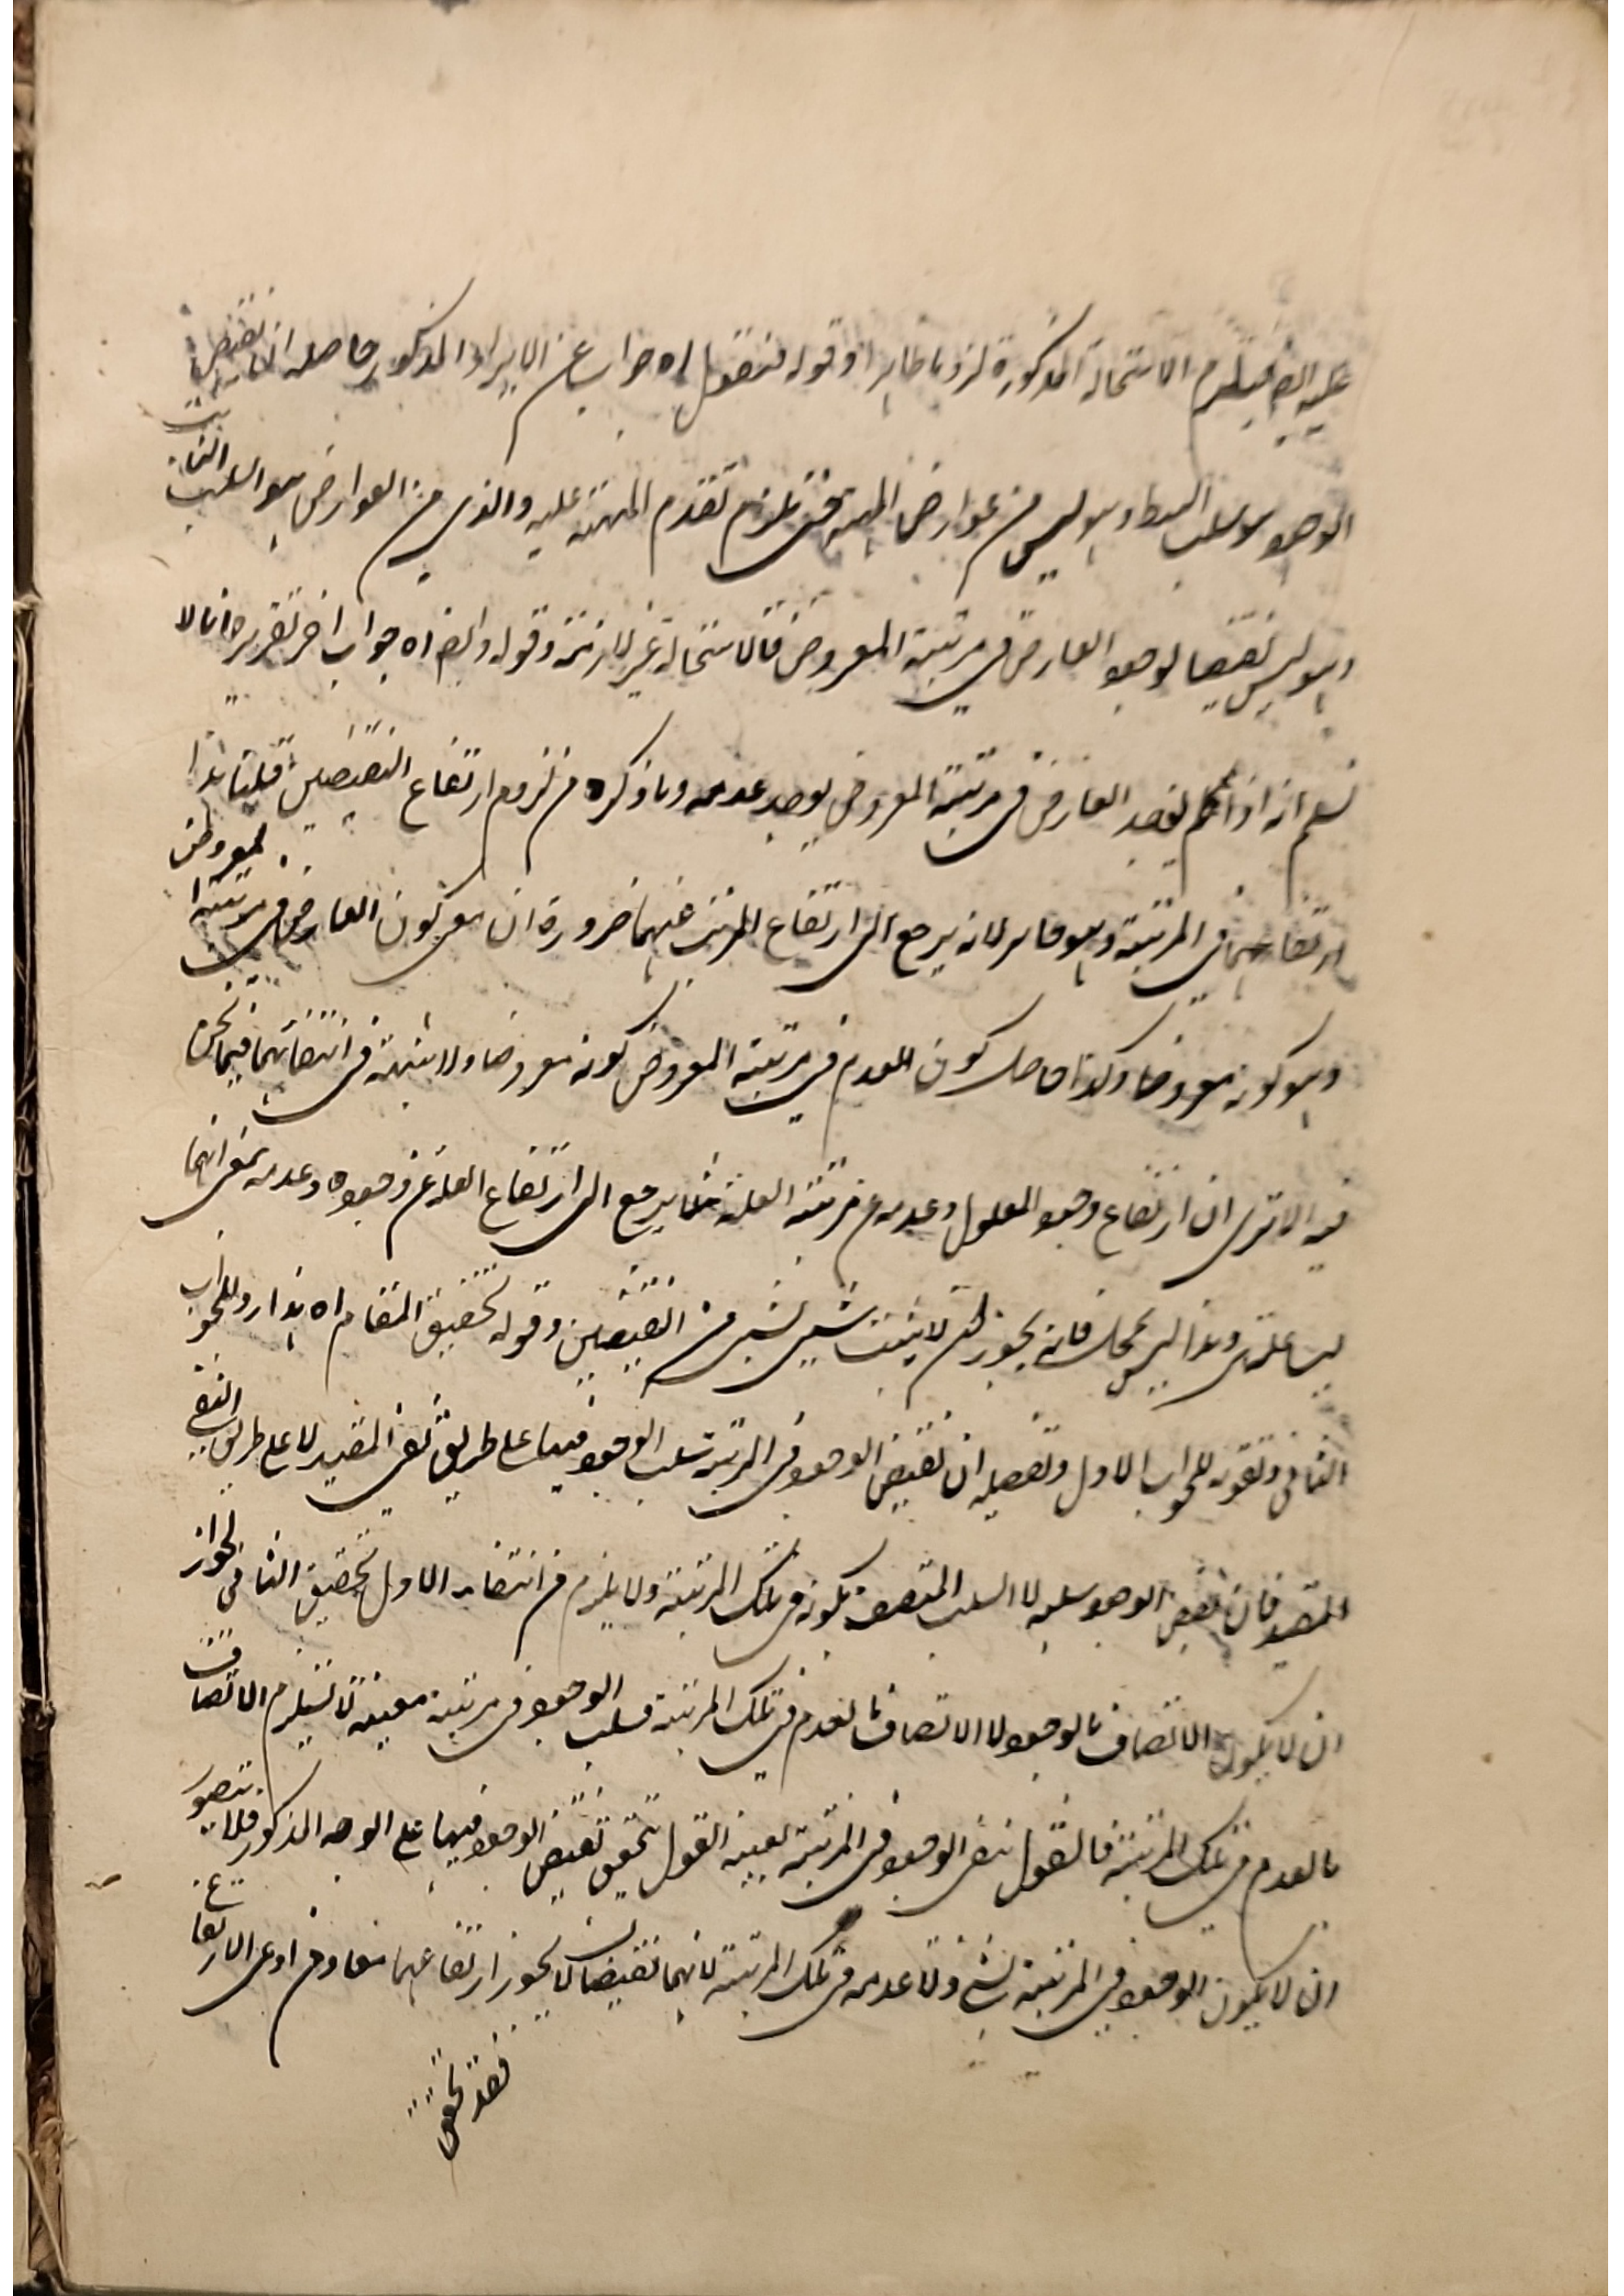 عليه ايضا فيلزم الاستحالة المذكورة لزوما ظاهرا وقوله فنقول اه جواب عن الايراد المذكور حاصله ان نقيض
الوجود سلب البسيط وهو ليس من عوارض المهية حتى يلزم تقدم المهية عليه والذي من العوارض هو السلب الثابت
وهو ليس نقيضا لوجود العارض في مرتبة المعروض فالاستحالة غير لازمة وقوله وايضا اه جواب اخر تقريره انا لا
نسلم انه اذا لم يوجد العارض في مرتبة المعروض يوجد عدمه وما ذكره من لزوم ارتفاع النقيضين قلنا هذا
ارتفاعهما في المرتبة وهو جايز لانه يرجع الى ارتفاع المرتبة عنهما ضرورة ان معنى كون العارض في مرتبة المعروض
وهو كونه معروضا وكذا حاصل كون العدم في مرتبة المعروض كونه معروضا ولا شبهة في انتفائهما فيما نحن
فيه الا ترى ان ارتفاع وجود المعلول وعدمه عن مرتبة العلة مثلا يرجع الى ارتفاع العلة عن وجوده وعدمه بمعنى انهما
ليسا علته وهذا ليس بمحال فانه يجوز ان لا يثبت شيئ لشيئ من النقيضين وقوله تحقيق المقام اه هذا رد للجواب
الثاني وتقوية للجواب الاول وتفصيله ان نقيض الوجود في المرتبة سلب الوجود فيها على طريق نفي المقيد لا على طريق النفي
المقيد فان نقيض الوجود سلبه لا السلب المتصف بكونه في تلك المرتبة ولا يلزم من انتفاء الاول تحقيق الثاني لجواز
ان لا يكون الاتصاف بالوجود ولا الاتصاف بالعدم في تلك المرتبة فسلب الوجود في مرتبة معينة لا يستلزم الاتصاف
بالعدم في تلك المرتبة فالقول بنفي الوجود في المرتبة بعينه القول بتحقق نقيض الوجود فيها على الوجه المذكور فلا يتصور
ان لا يكون الوجود في المرتبة لشئ ولا عدمه في تلك المرتبة لانهما نقيضان لا يجوز ارتفاعهما معا ومن ادعى الارتفاع
فقد تحقق